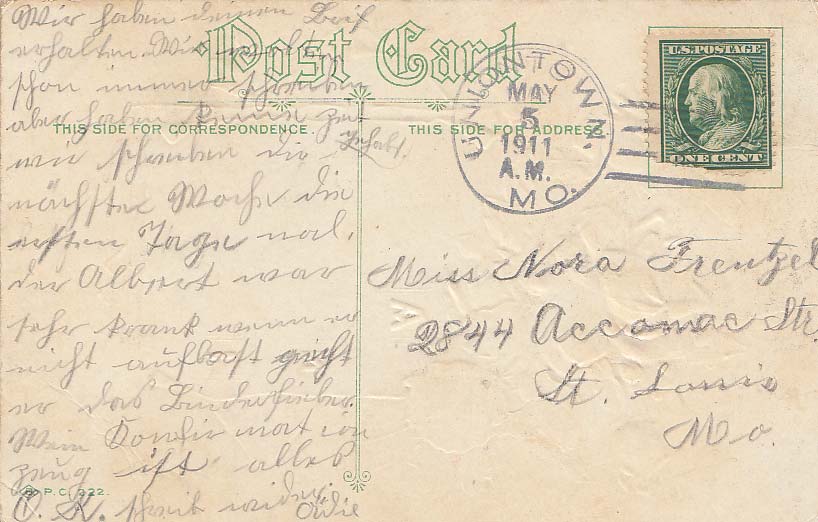 Wir haben deinen Brif
erhalten. Wir
schon immer schreiben
aber haben keine Zeit
gehabt.
wir schreiben die
nächste Woche die
ersten Tage mal.
der Albert war
sehr krank wenn er
nicht aufbast gricht
er das
Mein Confirmation
zeug ist alles
O. K. schreib wider
Post Card
THIS SIDE FOR CORRESPONDENCE.
THIS SIDE FOR ADDRESS
P.C. 322.
UNIONTOWN.
MAY
5
1911
A.M.
MO.
U.S. POSTAGE
ONE CENT
Miss Nora Frentzel
2844 Accomac Str.
St. Louis
Mo.